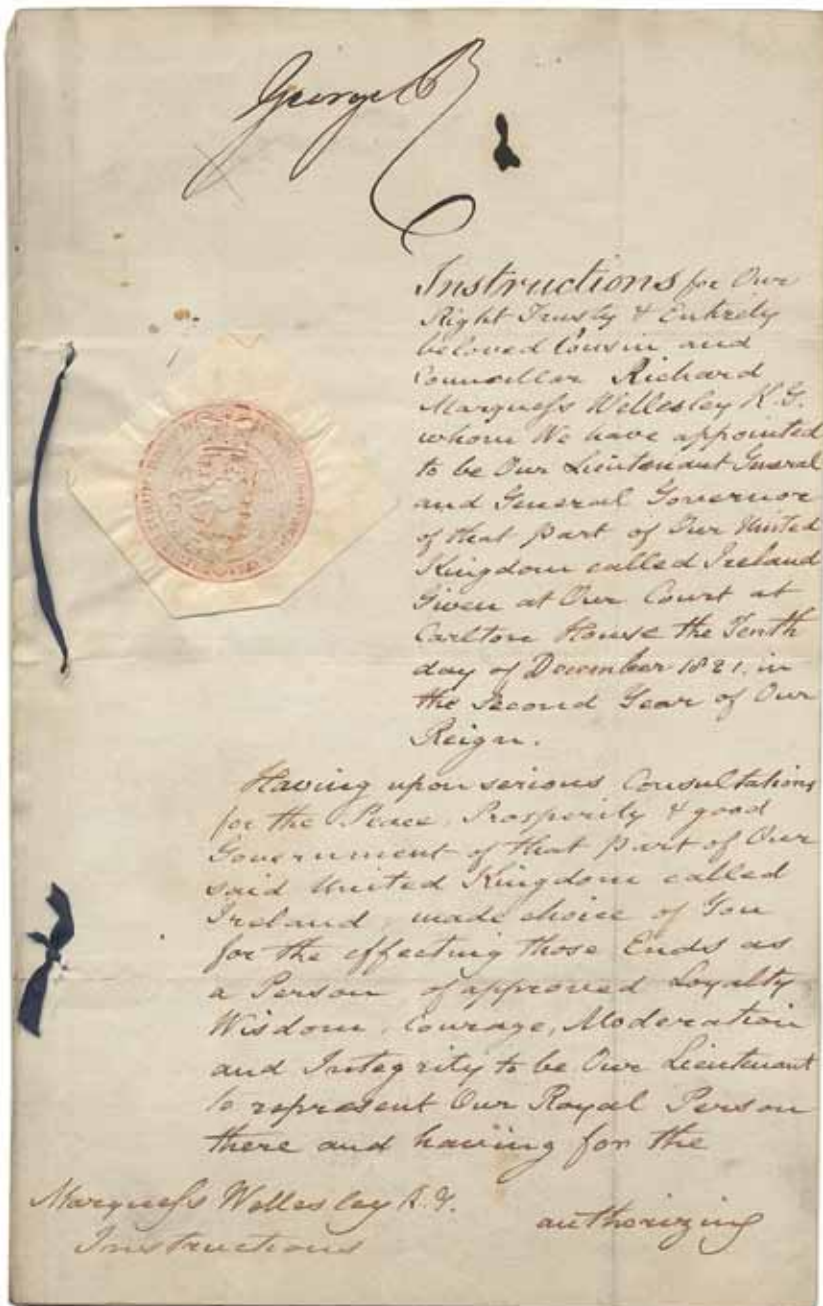 George R
Instructions for Our
Right Trusty & Entirely
beloved Cousin and
Councillor Richard
Marquess Wellesley K.G.
whom We have appointed
to be Our Lieutenant General
and General Governor
of that part of Our United
Kingdom called Ireland
Given at Our Court at
Carlton House the Tenth
day of December 1821, in
the Second Year of Our
Reign.
Having upon serious Consultations
for the Peace, Prosperity & good
Government of that part of Our
said United Kingdom called
Ireland, made choice of You
for the effecting those Ends as
a Person of approved Loyalty
Wisdom, Courage, Moderation
and Integrity to be Our Lieutenant
to represent Our Royal Person
there and having for the
authorizing
Marquess Wellesley K.G.
Instructions